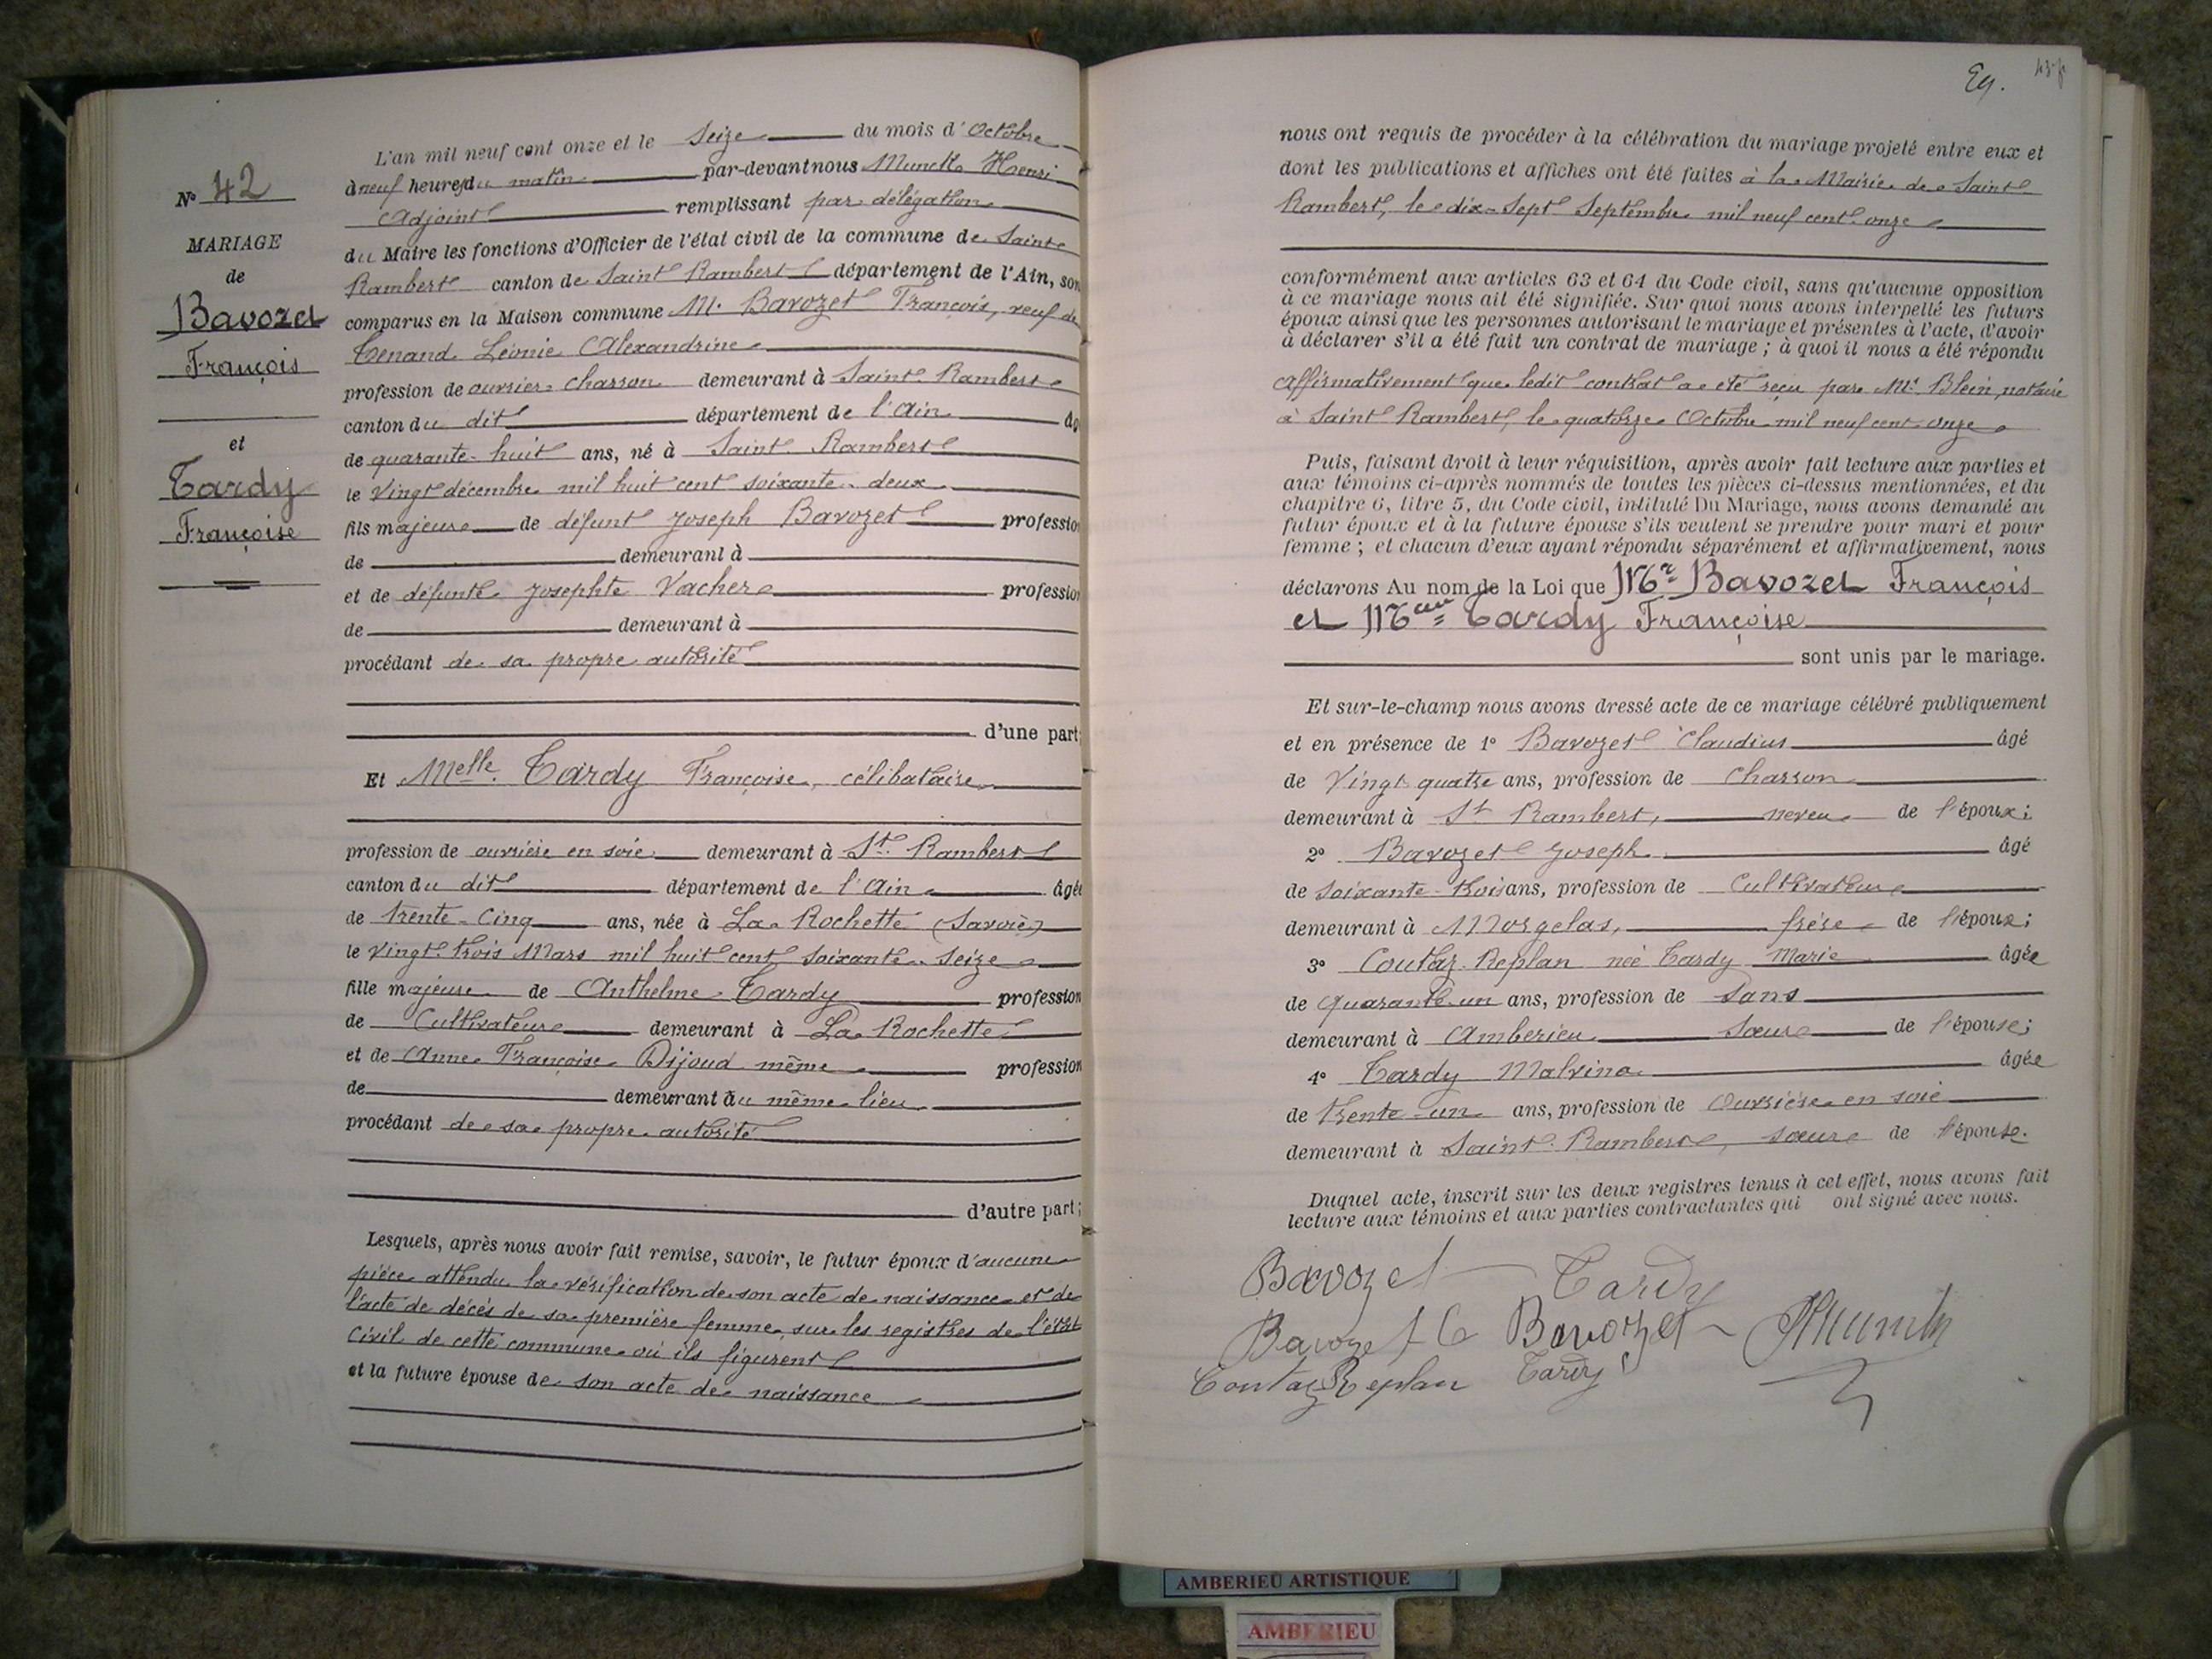 N° 42
MARIAGE
de
Bavozet
François
et
Tardy
Françoise
L'an mil neuf cent onze et le Seize du mois d'Octobre
à neuf heures du matin par-devant nous Munck Henri
Adjoint remplissant par délégation
du Maire les fonctions d'Officier de l'état civil de la commune de Saint
Rambert canton de Saint Rambert département de l'Ain, son
comparus en la Maison commune M. Bavozet François, veuf de
Tenand Léonie Alexandrine
profession de ouvrier charron demeurant à Saint Rambert
canton du dit département de l'Ain âgé
de quarante-huit ans, né à Saint Rambert
le Vingt décembre mil huit cent soixante-deux
fils majeur de défunt Joseph Bavozet profession
de demeurant à
et de défunte Josephte Vacher profession
de demeurant à
procédant de sa propre autorité
d'une part;
Et Melle Tardy Françoise, célibataire
profession de ouvrière en soie demeurant à St. Rambert
canton du dit département de l'Ain âgée
de trente-cinq ans, née à La Rochette (Savoie)
le Vingt-trois Mars mil huit cent soixante-seize
fille majeure de Anthelme Tardy profession
de Cultivateur demeurant à La Rochette
et de Anne Françoise Dijoud même profession
de demeurant au même lieu
procédant de sa propre autorité
d'autre part;
Lesquels, après nous avoir fait remise, savoir, le futur époux d'aucune
pièce attendu la vérification de son acte de naissance et de
l'acte de décès de sa première femme, sur les registres de l'état
Civil de cette commune où ils figurent
et la future épouse de son acte de naissance
Eg.
nous ont requis de procéder à la célébration du mariage projeté entre eux et
dont les publications et affiches ont été faites à la Mairie de Saint
Rambert, le dix-sept Septembre mil neuf cent onze
conformément aux articles 63 et 64 du Code civil, sans qu'aucune opposition
à ce mariage nous ait été signifiée. Sur quoi nous avons interpellé les futurs
époux ainsi que les personnes autorisant le mariage et présentes à l'acte, d'avoir
à déclarer s'il a été fait un contrat de mariage ; à quoi il nous a été répondu
affirmativement que ledit contrat a été reçu par Me Blein, notaire
à Saint Rambert, le quatorze Octobre mil neuf cent onze
Puis, faisant droit à leur réquisition, après avoir fait lecture aux parties et
aux témoins ci-après nommés de toutes les pièces ci-dessus mentionnées, et du
chapitre 6, titre 5, du Code civil, intitulé Du Mariage, nous avons demandé au
futur époux et à la future épouse s'ils veulent se prendre pour mari et pour
femme ; et chacun d'eux ayant répondu séparément et affirmativement, nous
déclarons Au nom de la Loi que Mr Bavozet François
et Melle Tardy Françoise
sont unis par le mariage.
Et sur-le-champ nous avons dressé acte de ce mariage célébré publiquement
et en présence de 1° Bavozet Claudius âgé
de Vingt-quatre ans, profession de Charron
demeurant à St Rambert, neveu de l'époux;
2° Bavozet Joseph âgé
de soixante-trois ans, profession de Cultivateur
demeurant à Morgelas, frère de l'époux;
3° Coutaz-Replan née Tardy Marie âgée
de quarante-un ans, profession de Sans
demeurant à Amberieu Sœur de l'épouse;
4° Tardy Malvina âgée
de trente-un ans, profession de Ouvrière en soie
demeurant à Saint Rambert, sœur de l'épouse.
Duquel acte, inscrit sur les deux registres tenus à cet effet, nous avons fait
lecture aux témoins et aux parties contractantes qui ont signé avec nous.
Bavozet Tardy
Bavozet C Bavozet HMunck
Coutaz Replan Tardy
AMBERIEU ARTISTIQUE
AMBERIEU